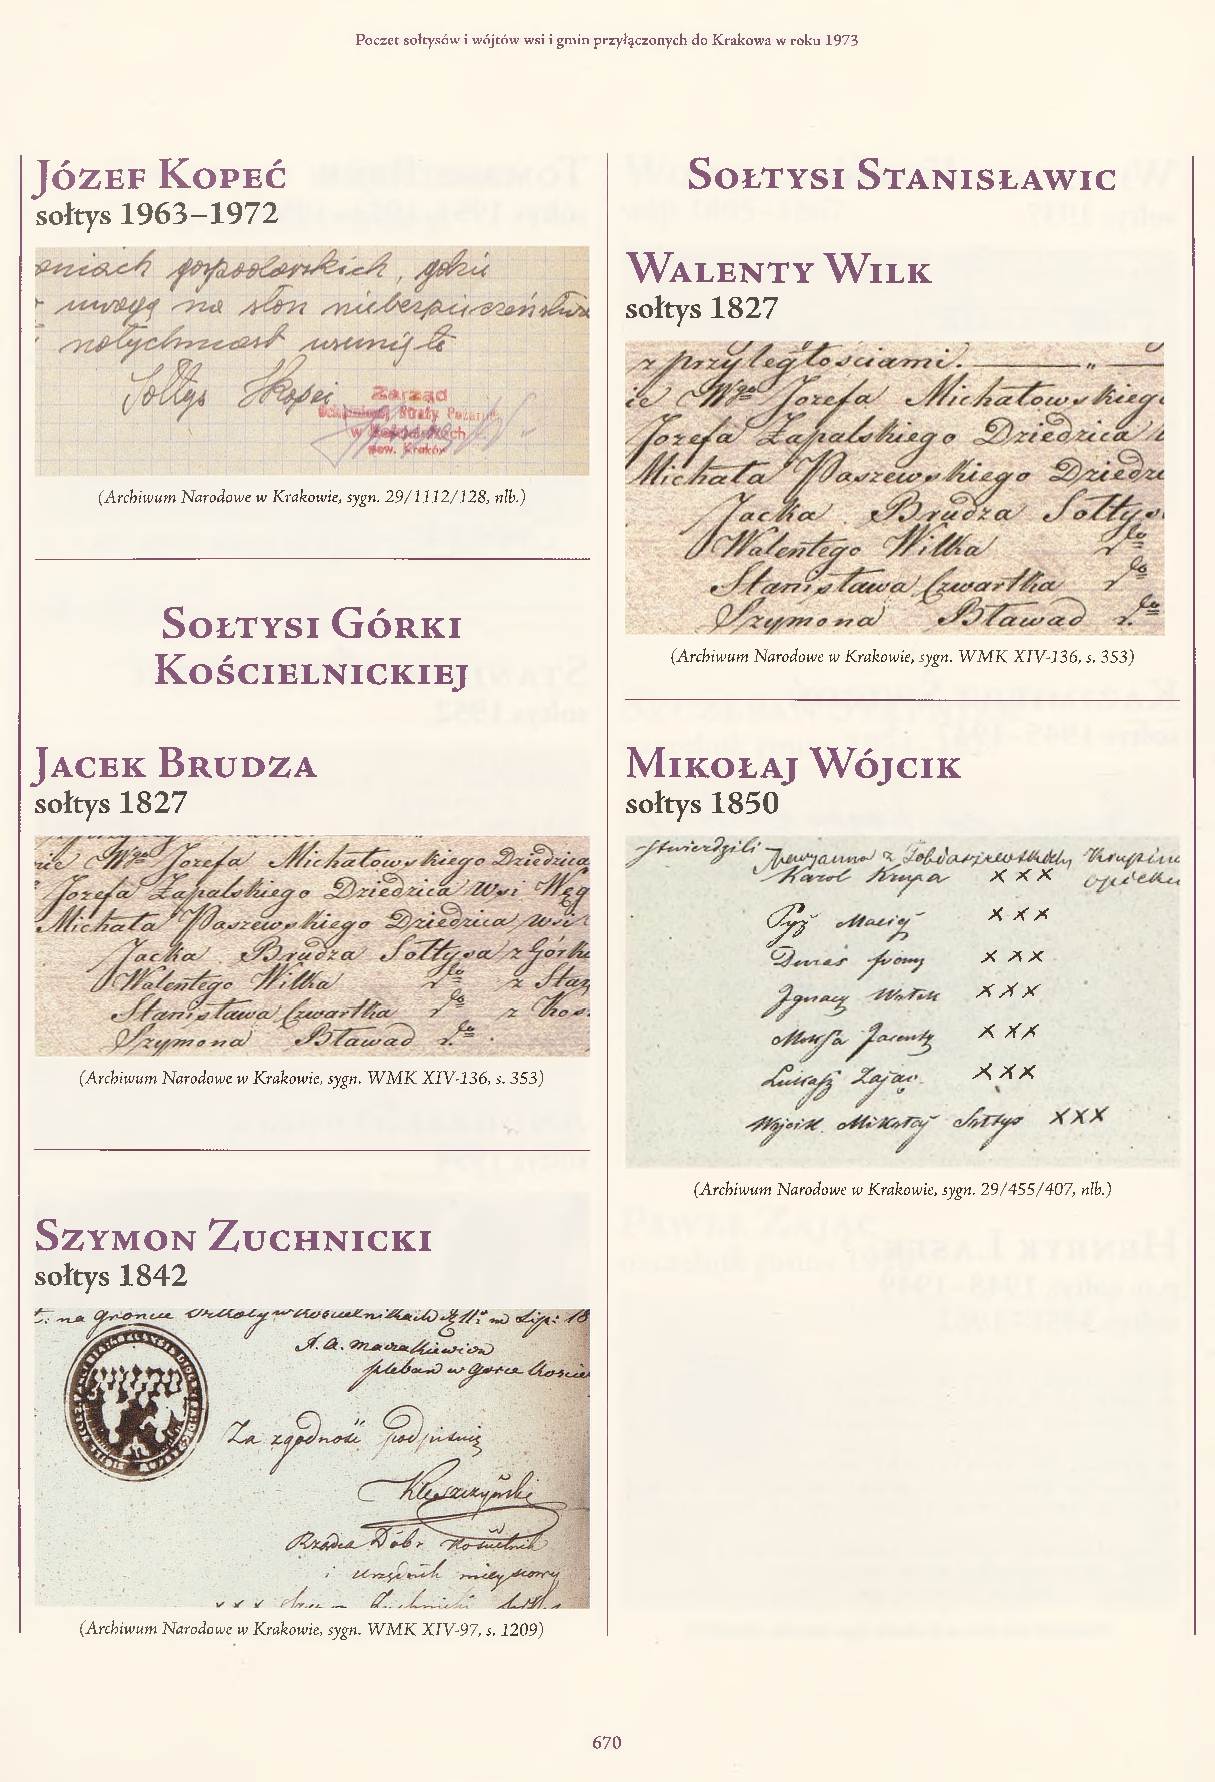 Poczet sołtysów i wójtów wsi i gmin przyłączonych do Krakowa w roku 1973
Józef Kopeć
sołtys 1963–1972
gospodarskich, gdzie
uwagę na stan niebezpieczeństwa
natychmiast usunięte
Sołtys Kopeć
Zarząd
Straży Pożarnej
w
pow. Kraków
(Archiwum Narodowe w Krakowie, sygn. 29/1112/128, nlb.)
Sołtysi Górki
Kościelnickiej
Jacek Brudza
sołtys 1827
Wgo Jozefa Michałowskiego Dziedzica
Jozefa Zapalskiego Dziedzica Wsi Węg
Michała Paszewskiego Dziedzica wsi
Jacka Brudza Sołtysa z Górki
Walentego Wilka do z Stan
Stanisława Czwartka do z Kos
Szymona Bławad do
(Archiwum Narodowe w Krakowie, sygn. WMK XIV-136, s. 353)
Szymon Zuchnicki
sołtys 1842
na gruncie w Kościelnikach d. 11 m Lip: 18
pleban w Gorce Koście
Za zgodność podpisuię
Kleszczyński
Rządca Dóbr Kościelnik
i urzędnik mieyscowy
x x x
(Archiwum Narodowe w Krakowie, sygn. WMK XIV-97, s. 1209)
Sołtysi Stanisławic
Walenty Wilk
sołtys 1827
z przyległościami.
Wgo Jozefa Michałowskiego
Jozefa Zapalskiego Dziedzica
Michała Paszewskiego Dziedzi
Jacka Brudza Sołtys
Walentego Wilka do
Stanisława Czwartka do
Szymona Bławad do
(Archiwum Narodowe w Krakowie, sygn. WMK XIV-136, s. 353)
Mikołaj Wójcik
sołtys 1850
stwierdzili
Karol Krupa x x x
Pyź Maciej x x x
x x x
Ignacy x x x
Jacenty x x x
Łukasz Zając x x x
Wojcik Mikołaj Sołtys x x x
(Archiwum Narodowe w Krakowie, sygn. 29/455/407, nlb.)
670